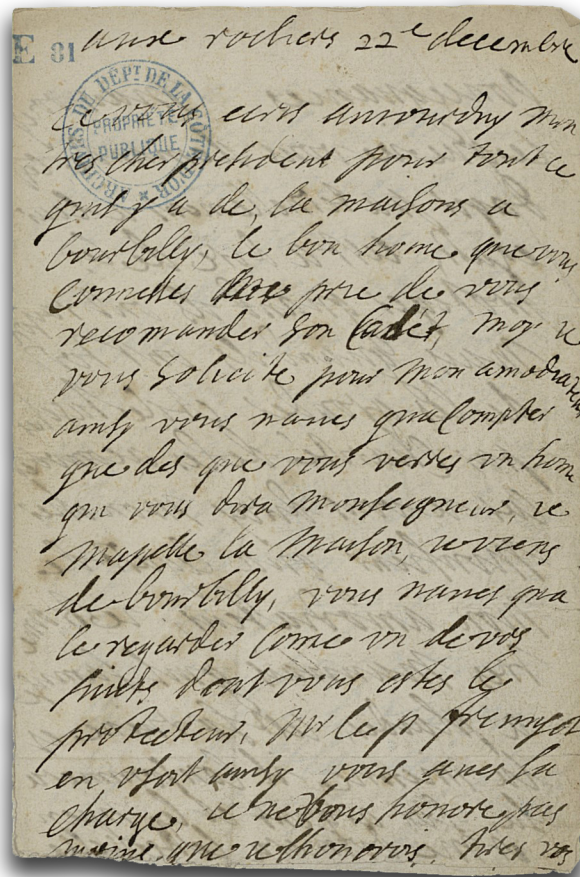 E 81
aux rochers 22e decembre
ARCHIVES DU DEPT DE LA COTE D'OR
PROPRIÉTÉ
PUBLIQUE
ie vous ecris auiourduy mon
cher president pour tout ce
quil y a de la maisons a
bourbilly, le bon home que vous
connesses me prie de vous
recomander son Cadet, moy ie
vous solicite pour mon amodiateur
ainsy vous naues qua Compter
que des que vous verres vn home
qui vous dira monseigneur, ie
mapelle la maison, ie viens
de bourbilly, vous naues qua
le regarder Come vn de vos
suiets dont vous estes le
protecteur, Mr le p fremyot
en vsoit ainsy vous aues sa
charge, ie ne vous honore pas
moins que ie lhonorois, tires vos